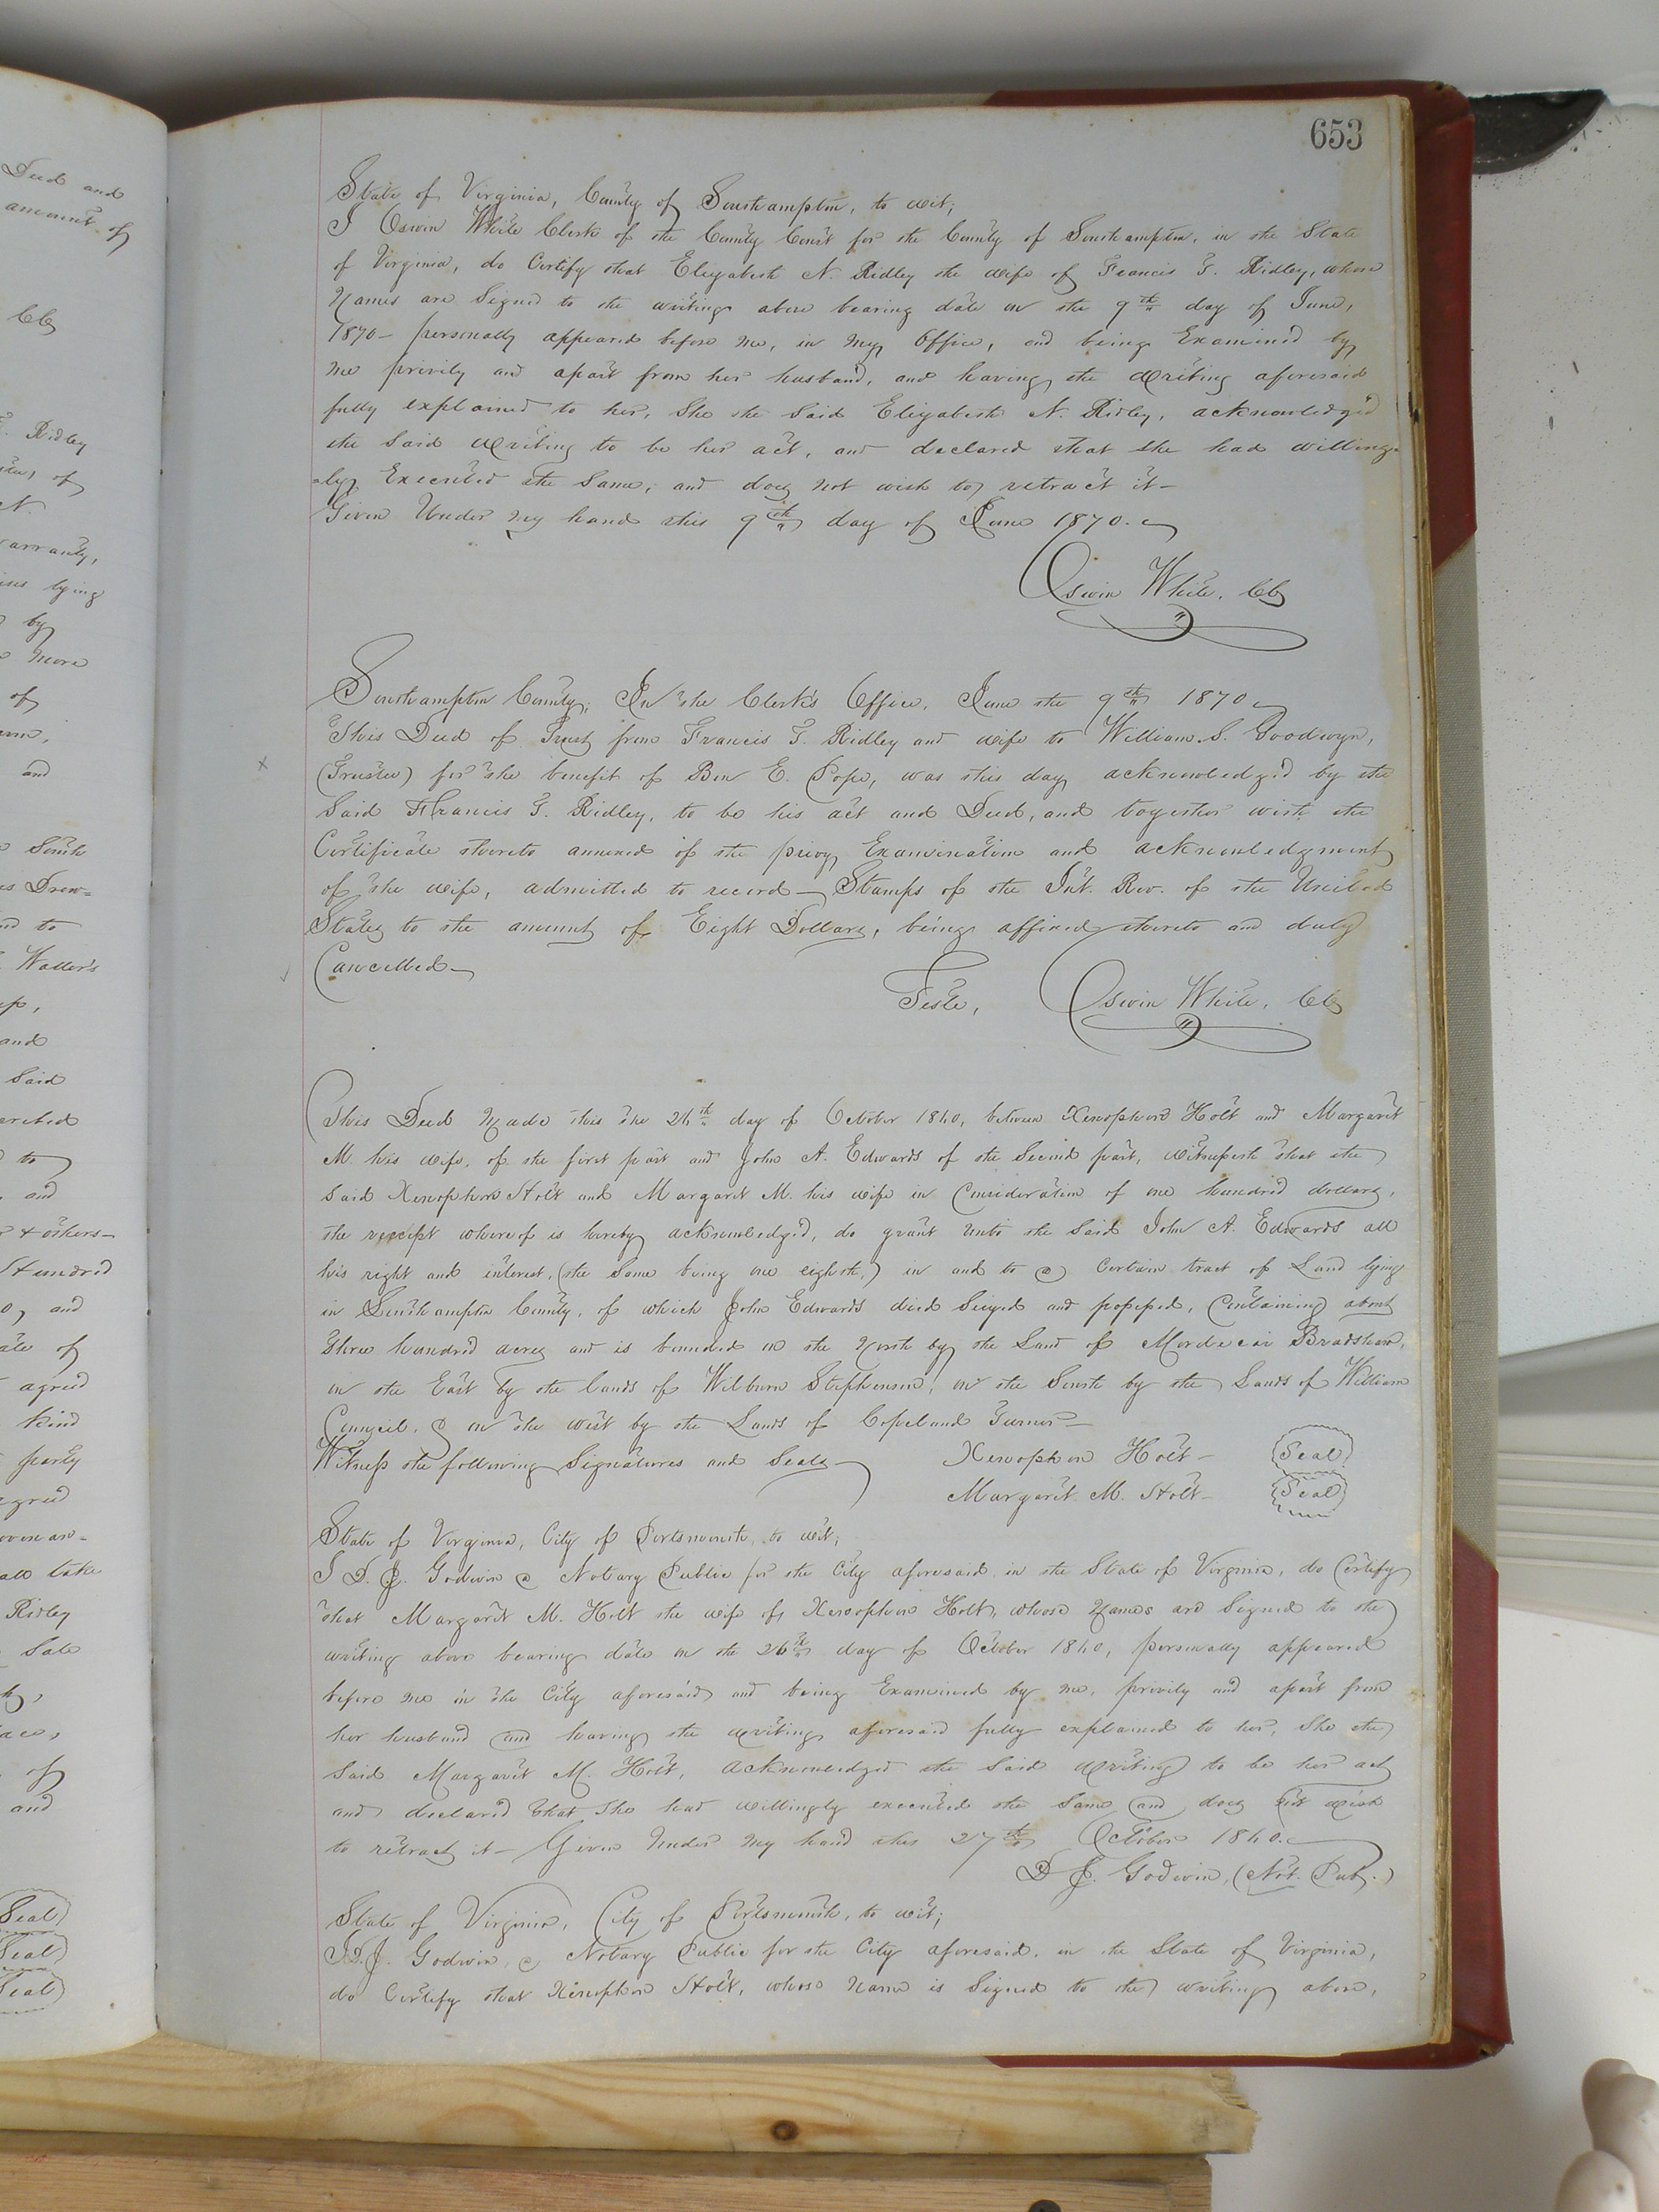 653
Deed and
amount of
CC
Ridley
of
N.
arranty,
lying
by
more
of
and
South
Drew=
to
Waller's
and
Said
to
and
& others—
Hundred
and
of
agreed
kind
party
take
Ridley
Sale
of
and
Seal
Seal
Seal
State of Virginia, County of Southampton, to wit;
I Oswin White Clerk of the County Court for the County of Southampton, in the State
of Virginia, do Certify that Elizabeth N. Ridley the wife of Francis T. Ridley, whose
Names are Signed to the writing above bearing date on the 9th day of June,
1870— personally appeared before me, in my Office, and being Examined by
me privily and apart from her husband, and having the Writing aforesaid
fully explained to her, She the Said Elizabeth N. Ridley, acknowledged
the Said Writing to be her act, and declared that She had willing-
-ly Executed the Same, and does not wish to retract it—
Given Under my hand this 9th day of June 1870.
Oswin White, CC
Southampton County; In the Clerk's Office, June the 9th 1870
This Deed of Trust from Francis T. Ridley and wife to William S. Goodwyn,
(Trustee) for the benefit of Ben E. Pope, was this day acknowledged by the
Said Francis T. Ridley, to be his act and Deed, and together with the
Certificate thereto annexed of the privy Examination and acknowledgment
of the wife, admitted to record— Stamps of the Int. Rev. of the United
States to the amount of Eight Dollars, being affixed thereto and duly
Cancelled—
Teste, Oswin White, CC
This Deed Made this the 26th day of October 1860, between Xenophon Holt and Margaret
M. his wife, of the first part and John A. Edwards of the Second part, witnesseth that the
Said Xenophon Holt and Margaret M. his wife in Consideration of one hundred dollars,
the receipt whereof is hereby acknowledged, do grant unto the Said John A. Edwards all
his right and interest, (the Same being one eighth,) in and to a Certain tract of Land lying
in Southampton County, of which John Edwards died Seized and possessed, Containing about
three hundred acres and is bounded on the North by the Land of Mordecai Bradshaw,
on the East by the lands of Wilburn Stephenson, on the South by the Lands of William
Council, & on the west by the Lands of Copeland Turner—
Witness the following Signatures and Seals— Xenophon Holt— Seal
Margaret M. Holt— Seal
State of Virginia, City of Portsmouth, to wit;
I D. J. Godwin a Notary Public for the City aforesaid in the State of Virginia, do Certify
that Margaret M. Holt the wife of Xenophon Holt, whose Names are Signed to the
writing above bearing date on the 26th day of October 1860, personally appeared
before me in the City aforesaid and being Examined by me, privily and apart from
her husband and having the writing aforesaid fully explained to her, She the
Said Margaret M. Holt, acknowledged the Said writing to be her act
and declared that She had willingly executed the Same and does not wish
to retract it— Given Under my hand this 27th October 1860.
D J. Godwin, (Not. Pub.)
State of Virginia, City of Portsmouth, to wit;
I D. J. Godwin, a Notary Public for the City aforesaid, in the State of Virginia,
do Certify that Xenophon Holt, whose name is Signed to the writing above,